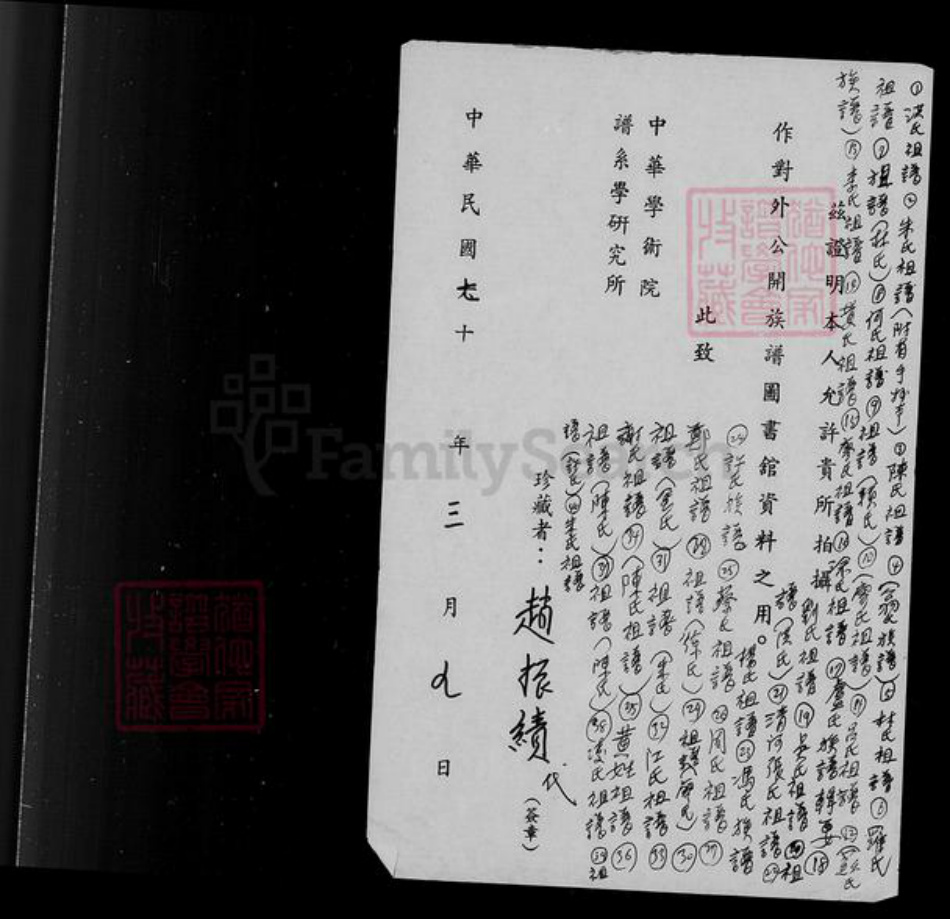 ①洪氏祖譜②朱氏祖譜(附有手抄本)③陳氏祖譜④(翁族譜)⑤林氏祖譜⑥羅氏
祖譜⑦祖譜(林氏)⑧何氏祖譜⑨祖譜(賴氏)⑩廖氏祖譜⑪呂氏祖譜⑫(蘇氏
族譜)⑬李氏祖譜⑭黃氏祖譜⑮廖氏祖譜⑯徐氏祖譜⑰盧氏族譜輯要⑱
劉氏祖譜⑲吳氏祖譜⑳祖
譜(洪氏)㉑清河張氏祖譜㉒
楊氏祖譜㉓馮氏族譜
㉔許氏族譜㉕蔡氏祖譜㉖周氏祖譜㉗
鄭氏祖譜㉘祖譜(徐氏)㉙祖譜(廖氏)㉚
祖譜(金氏)㉛祖譜(朱氏)㉜江氏祖譜㉝
謝氏祖譜㉞(陳氏祖譜)㉟黃姓祖譜㊱
祖譜(陳氏)㊲祖譜(陳氏)㊳凌氏祖譜㊴祖
譜(許氏)㊵朱氏祖譜
茲證明本人允許貴所拍攝
作對外公開族譜圖書舘資料之用。
此致
中華學術院
譜系學研究所
珍藏者:趙振績代(簽章)
中華民國七十年三月九日
FamilySearch